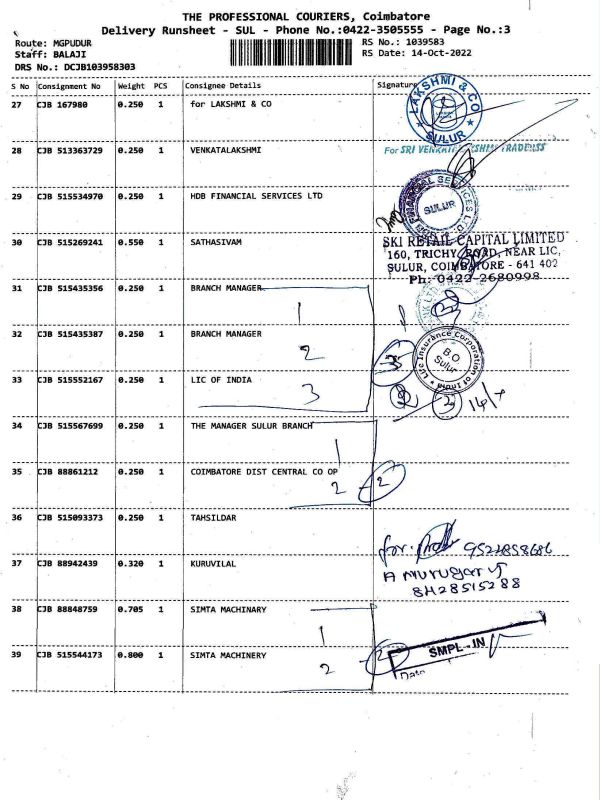 THE PROFESSIONAL COURIERS, Coimbatore
Delivery Runsheet - SUL - Phone No.:0422-3505555 - Page No.:3
Route: MGPUDUR RS No.: 1039583
Staff: BALAJI RS Date: 14-Oct-2022
DRS No.: DCJB103958303
S No Consignment No Weight PCS Consignee Details Signature
27 CJB 167980 0.250 1 for LAKSHMI & CO
LAKSHMI & CO
SULUR
28 CJB 513363729 0.250 1 VENKATALAKSHMI
For SRI
29 CJB 515534970 0.250 1 HDB FINANCIAL SERVICES LTD
SULUR
30 CJB 515269241 0.550 1 SATHASIVAM
SKI RETAIL CAPITAL LIMITED
160, TRICHY ROAD, NEAR LIC,
SULUR, COIMBATORE - 641 402
Ph: 0422-2680998
31 CJB 515435356 0.250 1 BRANCH MANAGER
1
32 CJB 515435387 0.250 1 BRANCH MANAGER
2
Life Insurance Corporation of India
B.O
Sulur
33 CJB 515552167 0.250 1 LIC OF INDIA
3
34 CJB 515567699 0.250 1 THE MANAGER SULUR BRANCH
1
35 CJB 88861212 0.250 1 COIMBATORE DIST CENTRAL CO OP
2 2
36 CJB 515093373 0.250 1 TAHSILDAR
for.
37 CJB 88942439 0.320 1 KURUVILAL
38 CJB 88848759 0.705 1 SIMTA MACHINARY
1
39 CJB 515544173 0.800 1 SIMTA MACHINERY
2 2
SMPL-IN
Date